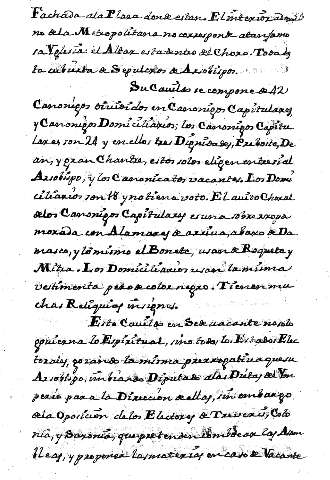 Fachada ala Plaza donde estan. El interior ador
no de la Metropolitana no corresponde a tan famo
sa Yglesia: el Altar esta dentro del Choro. Toda es
ta cubierta de Sepulcros de Arzobispos.
Su Cavildo se compone de 42
Canonigos divididos en Canonigos Capitulares,
y Canonigos Domiciliarios; los Canonigos Capitu
lares son 24 y en ellos tres Dignidades, Preboste, De
an, y gran Chantre, estos solos eligen entre si al
Arzobispo, y los Canonicatos vacantes. Los Domi
ciliarios son 18 y no tienen voto. El avito Choral
de los Canonigos Capitulares es una sobre ropa
morada con Alamares de arriva, abaxo de Da
masco, y lo mismo el Bonete, usan de Roquete y
Mitra. Los Domiciliarios usan la misma
vestimenta pero de color negro. Tienen mu
chas Reliquias insignes.
Este Cavildo en Sede vacante no solo
govierna lo Espiritual, sino todos los Estados Elec
torales, gozando la misma prerrogativa que su
Arzobispo, imbiando Diputados a las Dietas del Ym
perio para la Direccion de ellas, sin embargo
de la Oposicion de los Electores de Treveris, Colo
nia, y Saxonia, que pretenden las Asam
bleas, y proponer las materias en caso de Vacante